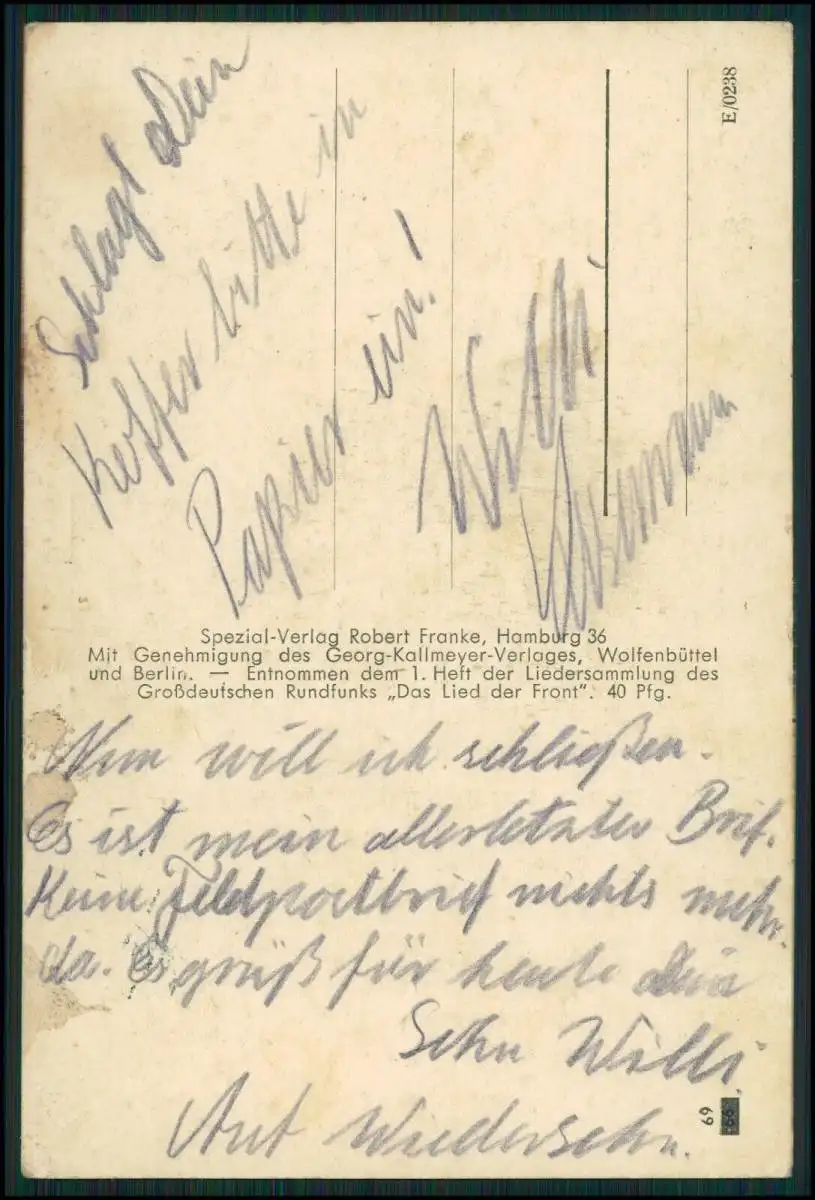 Schlagt Dein
Koffer bitte in
Papier ein!
Willi
E/0238
Spezial-Verlag Robert Franke, Hamburg 36
Mit Genehmigung des Georg-Kallmeyer-Verlages, Wolfenbüttel
und Berlin. — Entnommen dem 1. Heft der Liedersammlung des
Großdeutschen Rundfunks „Das Lied der Front“. 40 Pfg.
Nun will ich schließen.
Es ist mein allerletzter Brif.
Keine Feldpostbrief nichts mehr
da. Es grüß für heute Dein
Sohn Willi.
Auf Wiedersehn.
69
66